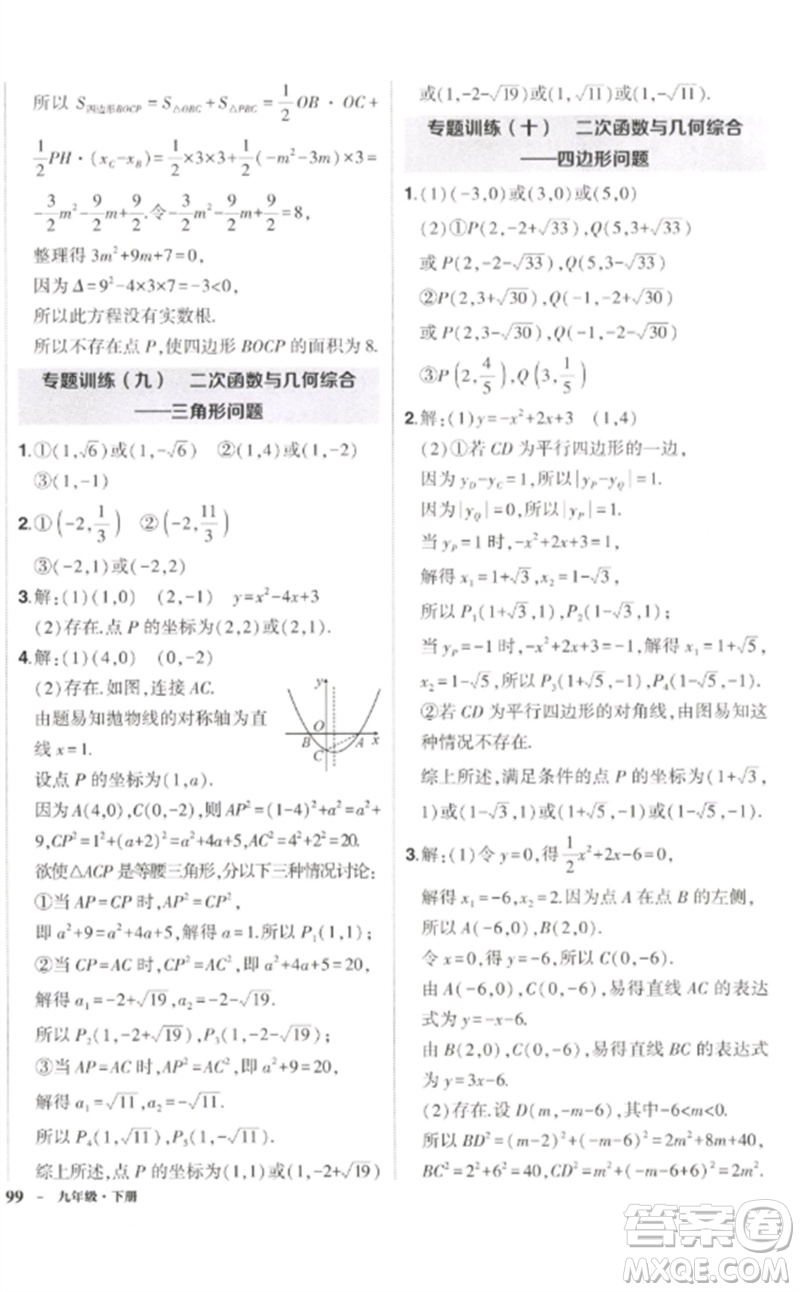 所以 S四边形BOCP=S△OBC+S△PBC=1/2 OB·OC+
1/2 PH·(x_C-x_B)=1/2×3×3+1/2(-m²-3m)×3=
-3/2 m²-9/2 m+9/2.令-3/2 m²-9/2 m+9/2=8,
整理得 3m²+9m+7=0,
因为 Δ=9²-4×3×7=-3<0,
所以此方程没有实数根.
所以不存在点 P,使四边形 BOCP 的面积为 8.
专题训练(九) 二次函数与几何综合
——三角形问题
1.①(1,√6)或(1,-√6) ②(1,4)或(1,-2)
③(1,-1)
2.①(-2,1/3) ②(-2,11/3)
③(-2,1)或(-2,2)
3.解:(1)(1,0) (2,-1) y=x²-4x+3
(2)存在.点 P 的坐标为(2,2)或(2,1).
4.解:(1)(4,0) (0,-2)
(2)存在.如图,连接 AC.
由题易知抛物线的对称轴为直
线 x=1.
y
O
B
A
x
C
设点 P 的坐标为(1,a).
因为 A(4,0),C(0,-2),则 AP²=(1-4)²+a²=a²+
9,CP²=1²+(a+2)²=a²+4a+5,AC²=20.
欲使△ACP 是等腰三角形,分以下三种情况讨论:
①当 AP=CP 时,AP²=CP²,
即 a²+9=a²+4a+5,解得 a=1.所以 P₁(1,1);
②当 CP=AC 时,CP²=AC²,即 a²+4a+5=20,
解得 a₁=-2+√19,a₂=-2-√19,
所以 P₂(1,-2+√19),P₃(1,-2-√19);
③当 AP=AC 时,AP²=AC²,即 a²+9=20,
解得 a₁=√11,a₂=-√11,
所以 P₄(1,√11),P₅(1,-√11).
综上所述,点 P 的坐标为(1,1)或(1,-2+√19)
99 - 九年级·下册
或(1,-2-√19)或(1,√11)或(1,-√11).
专题训练(十) 二次函数与几何综合
——四边形问题
1.(1)(-3,0)或(3,0)或(5,0)
(2)①P(2,-2+√33),Q(5,√33)
或 P(2,-2-√33),Q(5,-√33)
②P(2,3+√30),Q(-1,-2+√30)
或 P(2,3-√30),Q(-1,-2-√30)
③P(2,4/5),Q(3,1/5)
2.解:(1)y=-x²+2x+3 (1,4)
(2)①若 CD 为平行四边形的一边,
因为 y_D-y_C=1,所以|y_P-y_Q|=1.
因为|y_Q|=0,所以|y_P|=1.
当 y_P=1 时,-x²+2x+3=1,
解得 x₁=1+√3,x₂=1-√3,
所以 P₁(1+√3,1),P₂(1-√3,1).
当 y_P=-1 时,-x²+2x+3=-1,解得 x₁=1+√5,
x₂=1-√5,所以 P₃(1+√5,-1),P₄(1-√5,-1).
②若 CD 为平行四边形的对角线,由图易知这
种情况不存在.
综上所述,满足条件的点 P 的坐标为(1+√3,
1)或(1-√3,1)或(1+√5,-1)或(1-√5,-1).
3.解:(1)令 y=0,得 1/2 x²+2x-6=0,
解得 x₁=-6,x₂=2.因为点 A 在点 B 的左侧,
所以 A(-6,0),B(2,0).
令 x=0,得 y=-6,所以 C(0,-6).
由 A(-6,0),C(0,-6),易得直线 AC 的表达
式为 y=-x-6.
由 B(2,0),C(0,-6),易得直线 BC 的表达式
为 y=3x-6.
(2)存在.设 D(m,-m-6),其中-6<m<0.
所以 BD²=(m-2)²+(-m-6)²=2m²+8m+40,
BC²=2²+(-6)²=40,DC²=m²+(-m-6+6)²=
答案圈
MXQE.COM